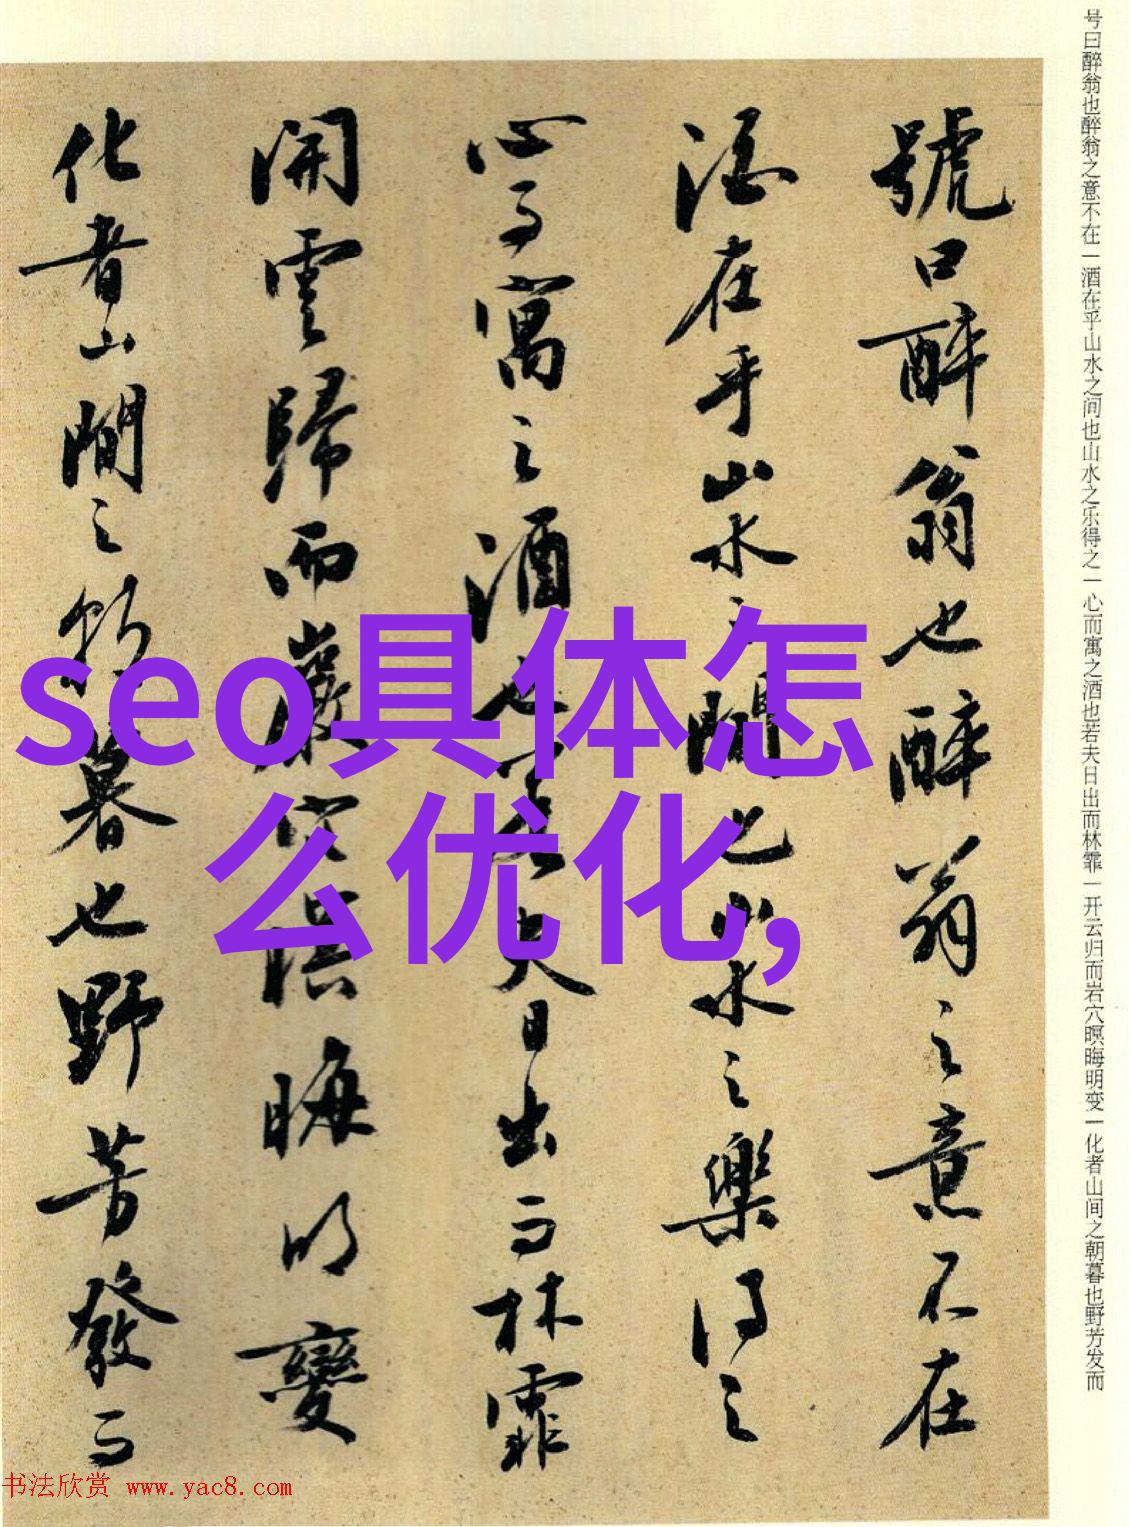 号曰醉翁也醉翁之意不在一酒在乎山水之间也山水之乐得之一心而寓之酒也若夫日出而林霏一开云归而岩穴暝晦明变一化者山间之朝暮也野芳发而
號曰醉翁也醉翁之意不在
酒在乎山水之間也山水之樂得之
心而寓之酒也若夫日出而林霏
開雲歸而巖穴暝晦明變
化者山間之朝暮也野芳發而
seo具体怎
么优化,
书法欣赏 www.yac8.com